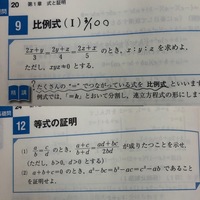 20 第1章 式と証明
9 比例式(I) 3/〇〇
(2x+y)/3=(2y+z)/4=(2z+x)/5 のとき, x:y:z を求めよ.
ただし, xyz≠0 とする.
たくさんの"="でつながっている式を比例式といいます
例式では,「=k」とおいて分割し, 連立方程式の形にします
24
12 等式の証明
(1) a/b=c/d のとき, (a+c)/(b+d)=(ad+bc)/2bd が成りたつことを示せ.
(ただし, b>0, d>0 とする)
(2) a+b+c=0 のとき, a²-bc=b²-ac=c²-ab であること
を証明せよ.